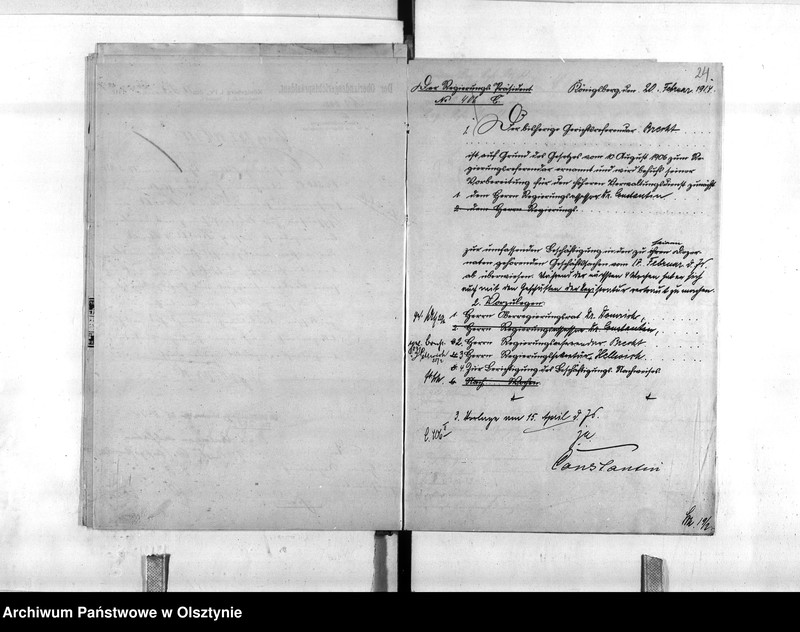 24.
Der Regierungs-Präsident
Königsberg, den 20. Februar 1914.
№ 406 E.
1. Der bisherige Gerichtsreferendar Brecht
ist auf Grund des Gesetzes vom 10 August 1906 zum Re-
gierungsreferendar ernannt und wird behufs seiner
Vorbereitung für den höheren Verwaltungsdienst zunächst
1. dem Herrn Regierungsassessor Dr. Constantin
2. dem Herrn Regierungs
zur umfassenden Beschäftigung in den zu seinem Dezer-
nate gehörenden Geschäftssachen vom 17. Februar d. Js.
ab überwiesen. Während der nächsten 4 Wochen hat er sich
auch mit den Geschäften der Registratur vertraut zu machen.
2. Vorzulegen
1. Herrn Oberregierungsrat Dr.
2. Herrn Regierungsassessor Dr. Constantin,
2. Herrn Regierungsreferendar Brecht
3 Herrn Regierungssekretär Hellwich
4 Zur Berichtigung des Beschäftigungs-Nachweises.
Nach Wochen
3. Vorlage am 15. April d. Js.
E. 406
Constantin
Archiwum Państwowe w Olsztynie